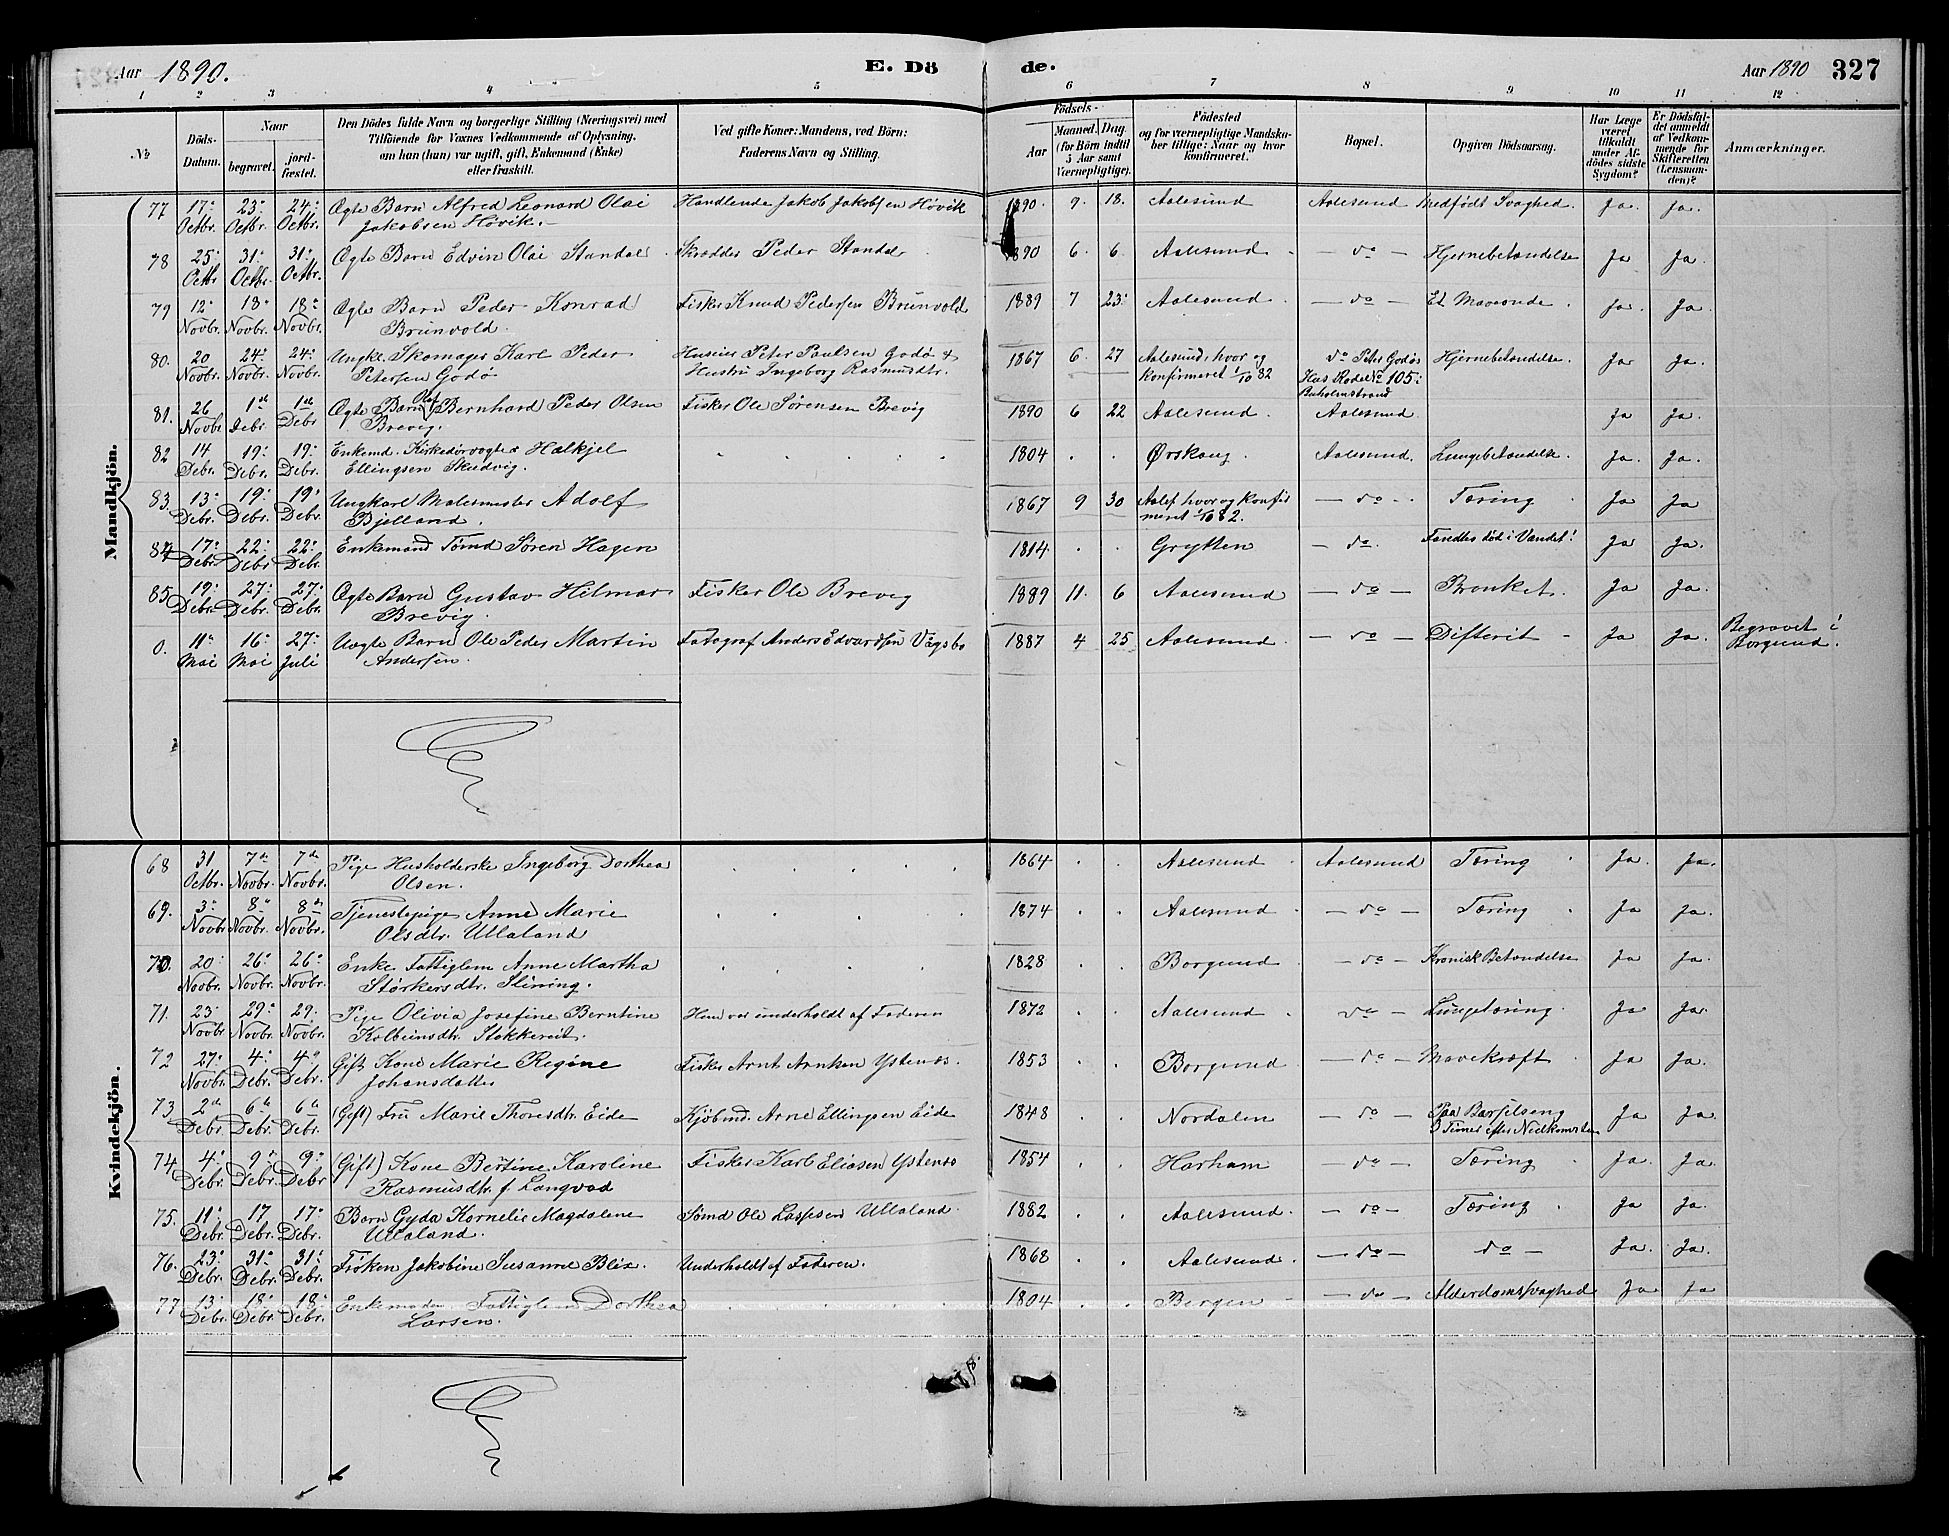 Aar 1890. E. Dö de. Aar 1890 327
1 2 3 4 5 6 7 8 9 10 11 12
№ Döds-Datum. Naar begravet. jordfæstet. Den Dödes fulde Navn og borgerlige Stilling (Næringsvei) med Tilföiende for Voxnes Vedkommende af Oplysning, om han (hun) var ugift, gift, Enkemand (Enke) eller fraskilt. Ved gifte Koner: Mandens, ved Börn: Faderens Navn og Stilling. Födsels- Aar Maaned. Dag (for Börn indtil 5 Aar samt Værnepligtige). Födested og for værnepligtige Mandskaber tillige: Naar og hvor konfirmeret. Bopæl. Opgiven Dödsaarsag. Har Læge været tilkaldt under Afdödes sidste Sygdom? Er Dödsfaldet anmeldt af Vedkommende for Skifteretten (Lensmanden)? Anmærkninger.
Mandkjön.
77 17de Octbr. 23de Octbr. 24de Octbr. Ægte Barn Alfred Leonard Olai Handlende Jakob Jakobsen Hövik 1890. 9. 18. Aalesund Aalesund Medfödt Svaghed. Ja. Ja.
Jakobsen Hövik.
78 25 Octbr 31 Octbr. 31 Octbr. Ægte Barn Edvin Olai Standal Skrædder Peder Standal 1890 6. 6 Aalesund - do - Hjernebetændelse Ja Ja.
79 12 Novbr. 18 Novbr. 18 Novbr. Ægte Barn Peder Konrad Fisker Knud Pedersen Brunvold 1889 7 23 Aalesund - do - Et Maveonde. Ja. Ja.
Brunvold.
80. 20 Novbr. 24 Novbr. 24 Novbr. Ungkl. Skomager Karl Peder Huseier Peter Paulsen Godö & 1867 6. 27 Aalesund, hvor og do Peter Godös Hjernebetændelse. Ja Ja.
Petersen Godö Hustru Ingeborg Rasmusdtr. konfirmeret 1/10 82 Hus Rode No 105 i
81. 26 Novbr 1de Debr. 1de Debr Ægte Barn Olaf Bernhard Peder Olsen Fisker Ole Sörensen Brevig 1890 6 22 Aalesund. Aalesund. Ja Ja.
Brevig.
82 14 Debr. 19 Debr. 19 Debr. Enkemd. Kirkedörvogter Halkjel 1804 Ørskoug. Aalesund. Lungebetændelse. Ja. Ja.
Ellingsen Skudvig.
83. 13 Debr. 19 Debr. 19 Debr. Ungkarl Malermester Adolf 1867 9 30 Aales. hvor og konfir - do - Tæring Ja Ja
Bjelland. meret 1/10 82.
84 17 Debr. 22 Debr 22 Debr. Enkemand Tömd Sören Hagen 1814. Grytten - do. Fandtes död i Vandet! Ja Ja.
85 19 Debr. 27 Debr. 27 Debr. Ægte Barn Gustav Hilmar Fisker Ole Brevig 1889 11. 6 Aalesund - do - Bronket. Ja Ja.
Brevig.
0. 11 Mai 16 Mai 27 Juli Uægte Barn Ole Peder Martin Fotograf Anders Edvardsen Vägsbo 1887 4 25 Aalesund - do - Difterit - Ja Ja. Begravet i
Andersen. Borgund.
Kvindekjön.
68 31 Octbr. 7de Novbr. 7de Novbr. Pige Husholderske Ingeborg Dorthea 1864 Aalesund Aalesund Tæring Ja. Ja.
Olsen.
69. 3 Novbr 8 Novbr. 8de Novbr. Tjenestepige Anne Marie 1874 Aalesund - do - Tæring Ja Ja.
Olsdtr. Ullaland
70. 20 Novbr. 26 Novbr. 26 Novbr. Enke Fattiglem Anne Martha 1828 Borgund. - do - Kronisk Betændelse Ja Ja.
Störkersdtr. Slining.
71. 23 Novbr 29 Novbr. 29 Novbr. Pige Olivia Josefine Berntine Hun var underholdt af Faderen 1872 Aalesund do - Lungetæring. Ja Ja.
Kolbeinsdtr. Stokkereit.
72 27 Novbr. 4 Debr. 4de Debr. Gift Kone Marie Regine Fisker Arnt Arntsen Ystenæs. 1853 Borgund - do - Mavekræft Ja Ja.
Johansdatter
73 2de Debr. 6te Debr. 6te Debr. (Gift) Fru Marie Thoresdtr. Eide Kjöbmd. Arne Ellingsen Eide 1848 Nordalen - do - Paa Barselseng Ja Ja.
3 Timer efter Nedkomsten
74. 4 Debr. 9 Debr. 9 Debr (Gift) Kone Bertine Karoline Fisker Karl Eliasen Ystenæs 1854 Harham - do - Tæring Ja. Ja.
Rasmusdtr. f. Langvad
75. 11 Debr. 17 Debr. 17 Debr. Barn Gyda Kornelie Magdalene Sömd Ole Lassesen Ullaland. 1882 Aalesund. - do - Tæring Ja Ja.
Ullaland.
76. 23 Debr. 31 Debr. 31 Debr. Fröken Jakobine Susanne Blix. Underholdt af Faderen. 1868 Aalesund. - do - - do - Ja. Ja.
77 13 Debr. 18 Debr. 18 Debr. Fattiglem Dorthea 1804 Bergen - do - Alderdomssvaghed Ja Ja
Larsen.